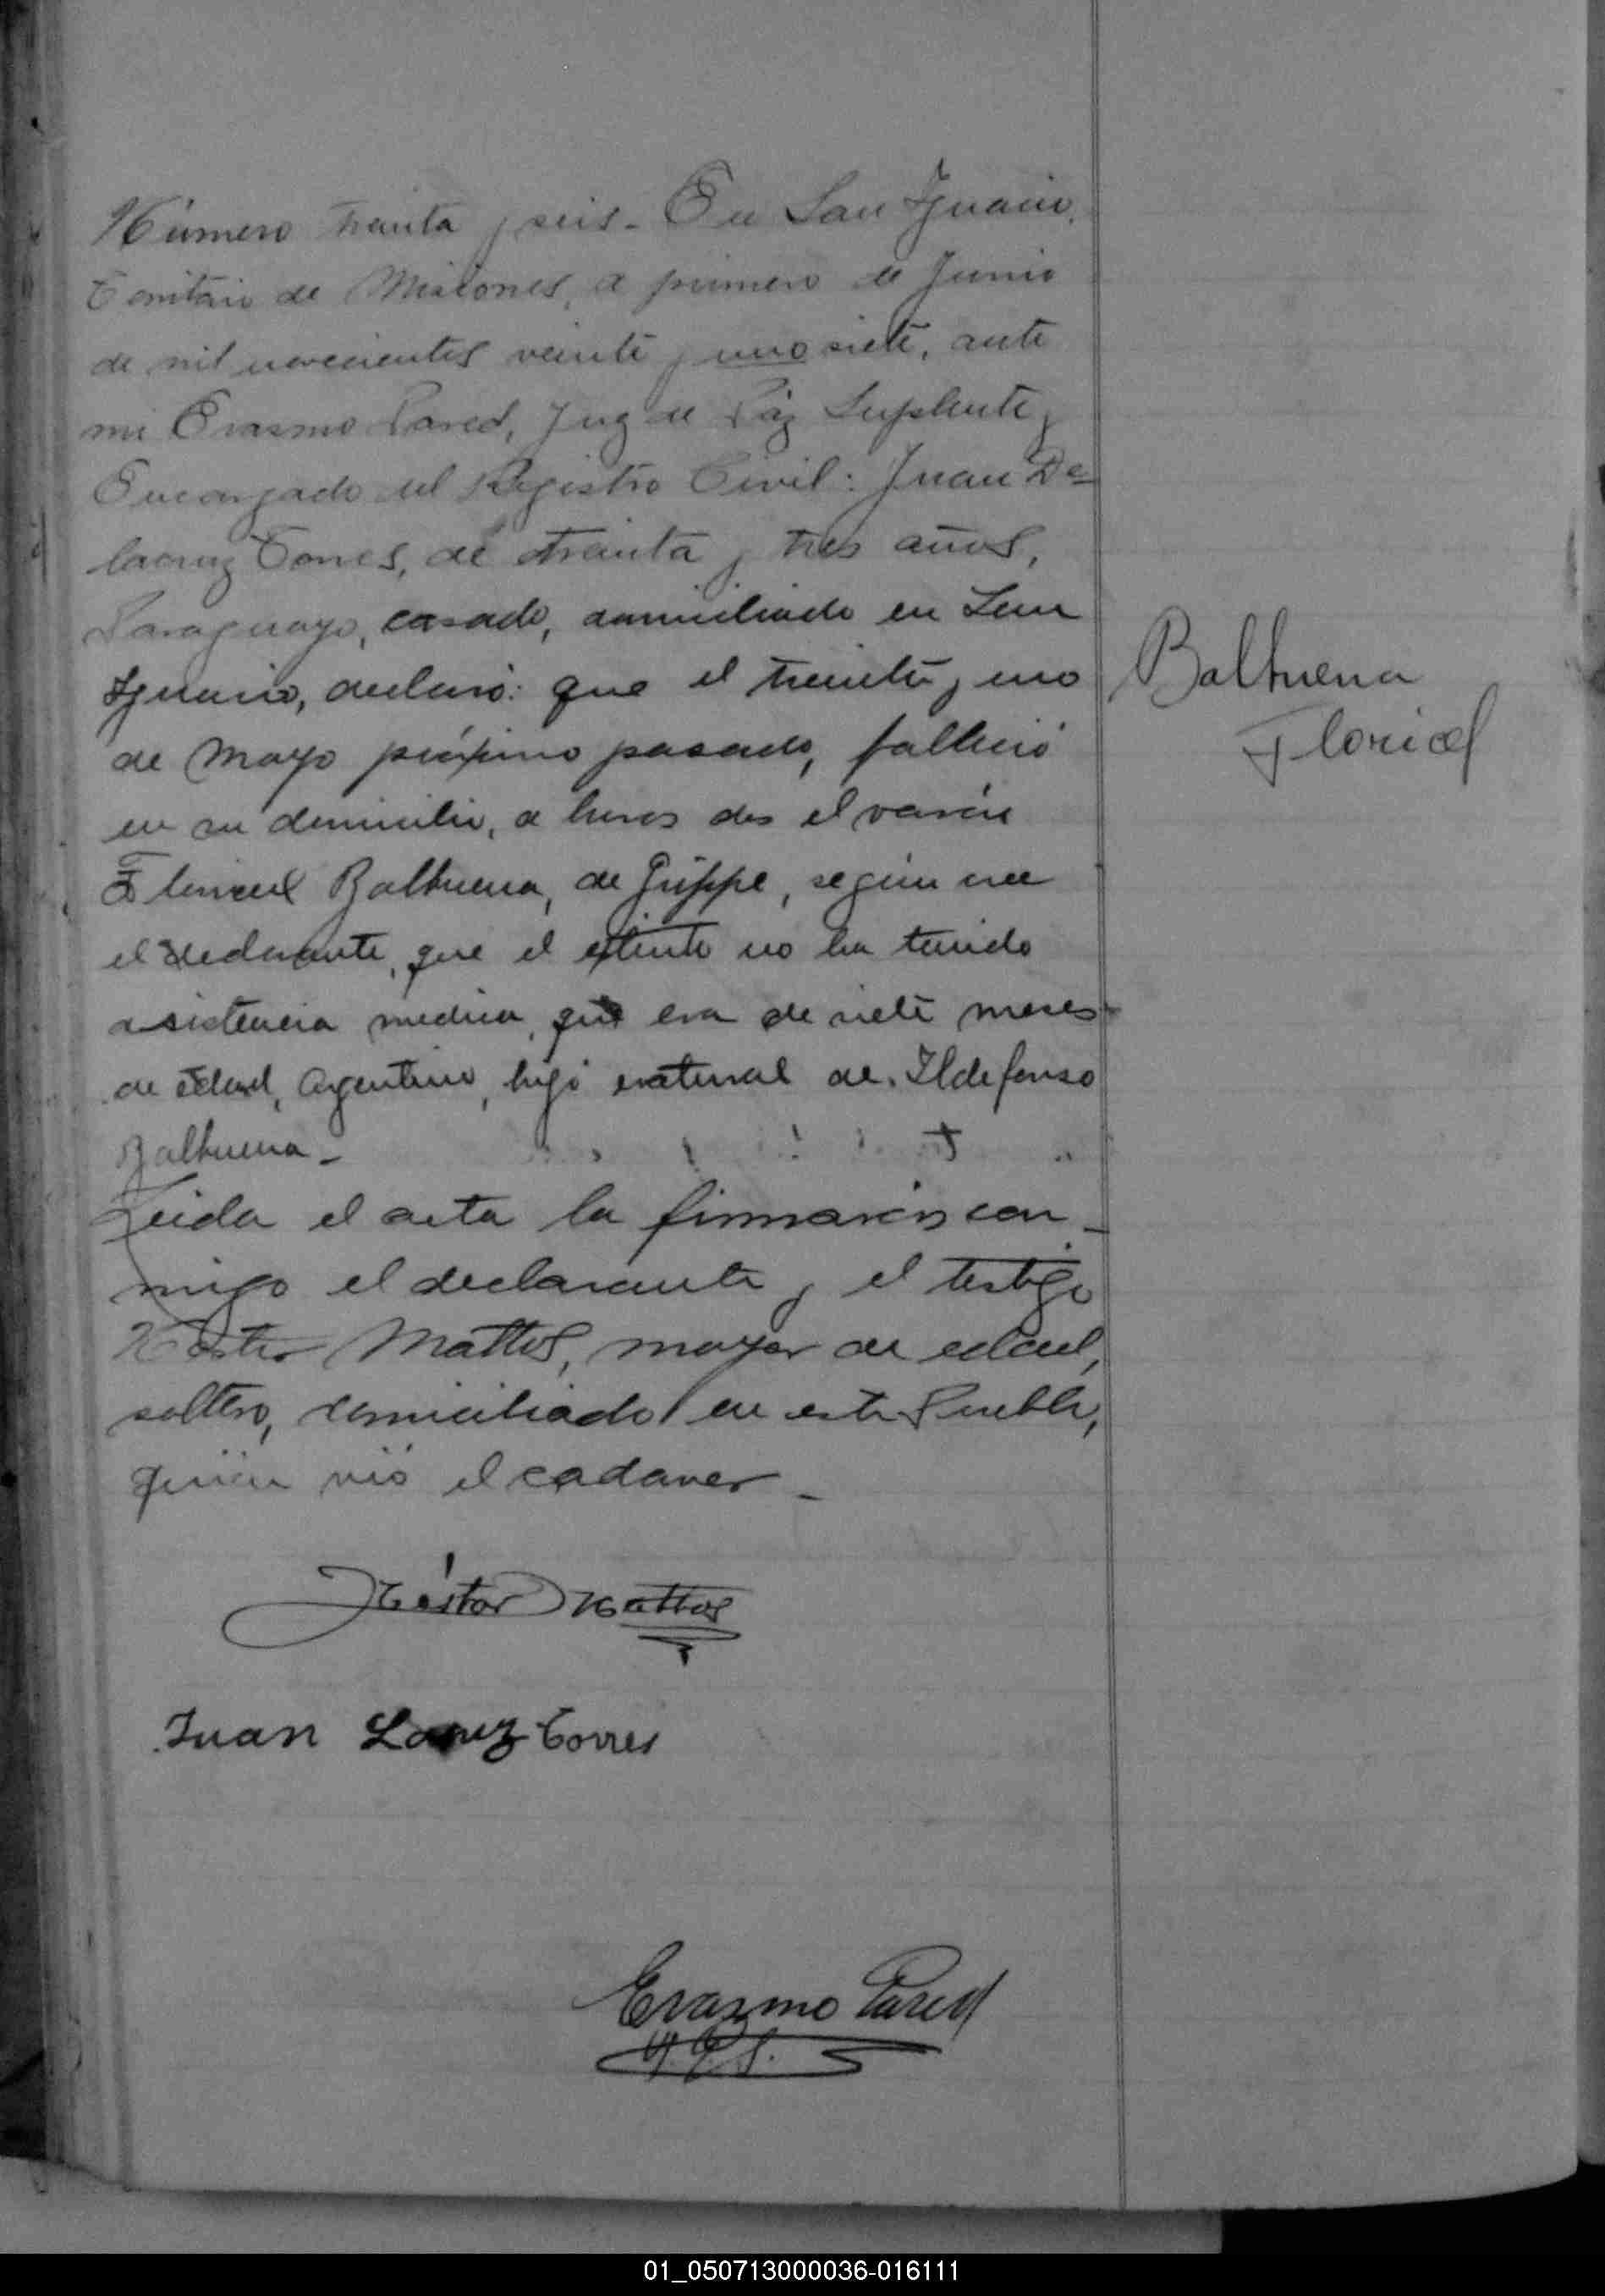 Número treinta y seis - En San Ignacio,
Territorio de Misiones, a primero de Junio
de mil novecientos veinte y uno siete, ante
mi Erasmo Pared, Juez de Paz Suplente y
Encargado del Registro Civil: Juan De
lacruz Torres, de treinta y tres años,
Paraguayo, casado, domiciliado en San
Ignacio, declaró: que el treinta y uno
de Mayo próximo pasado, falleció
en su domicilio, a horas dos el varón
Floricel Balbuena, de Grippe, según cree
el declarante, que el extinto no ha tenido
asistencia medica, que era de siete meses
de edad, Argentino, hijo natural de Ildefonso
Balbuena -
Leida el acta la firmaron con -
migo el declarante y el testigo
Néstor Mattos, mayor de edad,
soltero, domiciliado en este Pueblo,
quien vió el cadaver -
Balbuena
Floricel
Néstor Mattos
Juan Torres
Erasmo Pared
J. P. S.
01_050713000036-016111